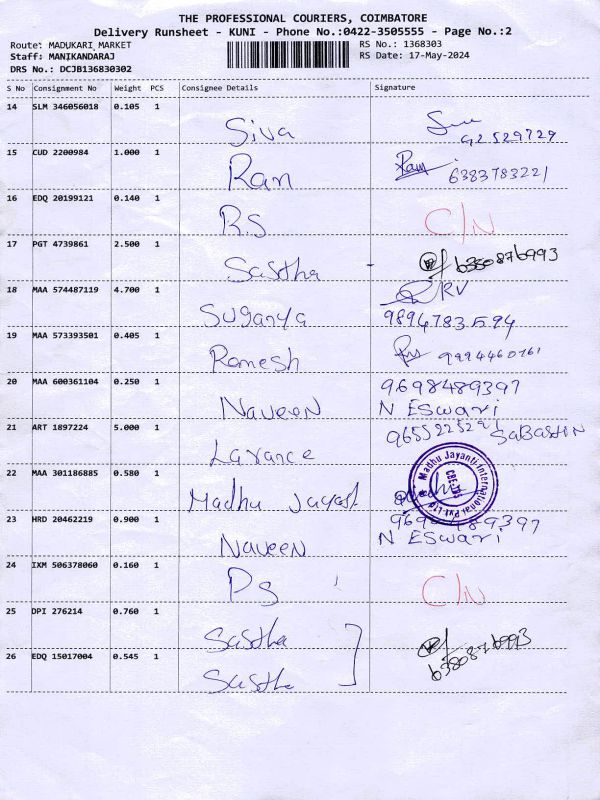 THE PROFESSIONAL COURIERS, COIMBATORE
Delivery Runsheet - KUNI - Phone No.:0422-3505555 - Page No.:2
Route: MADUKARI MARKET RS No.: 1368303
Staff: MANIKANDARAJ RS Date: 17-May-2024
DRS No.: DCJB136830302
S No Consignment No Weight PCS Consignee Details Signature
14 SLM 346056018 0.105 1 Siva 92529729
15 CUD 2200984 1.000 1 Ram Ram 6383783221
16 EDQ 20199121 0.140 1 RS C/N
17 PGT 4739861 2.500 1 Sastha - 6380876993
18 MAA 574487119 4.700 1 Suganya RV
9894783594
19 MAA 573393501 0.405 1 Ramesh 9994460761
20 MAA 600361104 0.250 1 Naveen 9698489397
N ESwari
21 ART 1897224 5.000 1 Larance 9655225291 SaBastin
22 MAA 301186885 0.580 1 Madhu Jayast
Madhu Jayanti International Pvt Ltd
23 HRD 20462219 0.900 1 Naveen 9698489397
N ESwari
24 IXM 506378060 0.160 1 PS C/N
25 DPI 276214 0.760 1 Sastha
26 EDQ 15017004 0.545 1 Sastha 6380876993